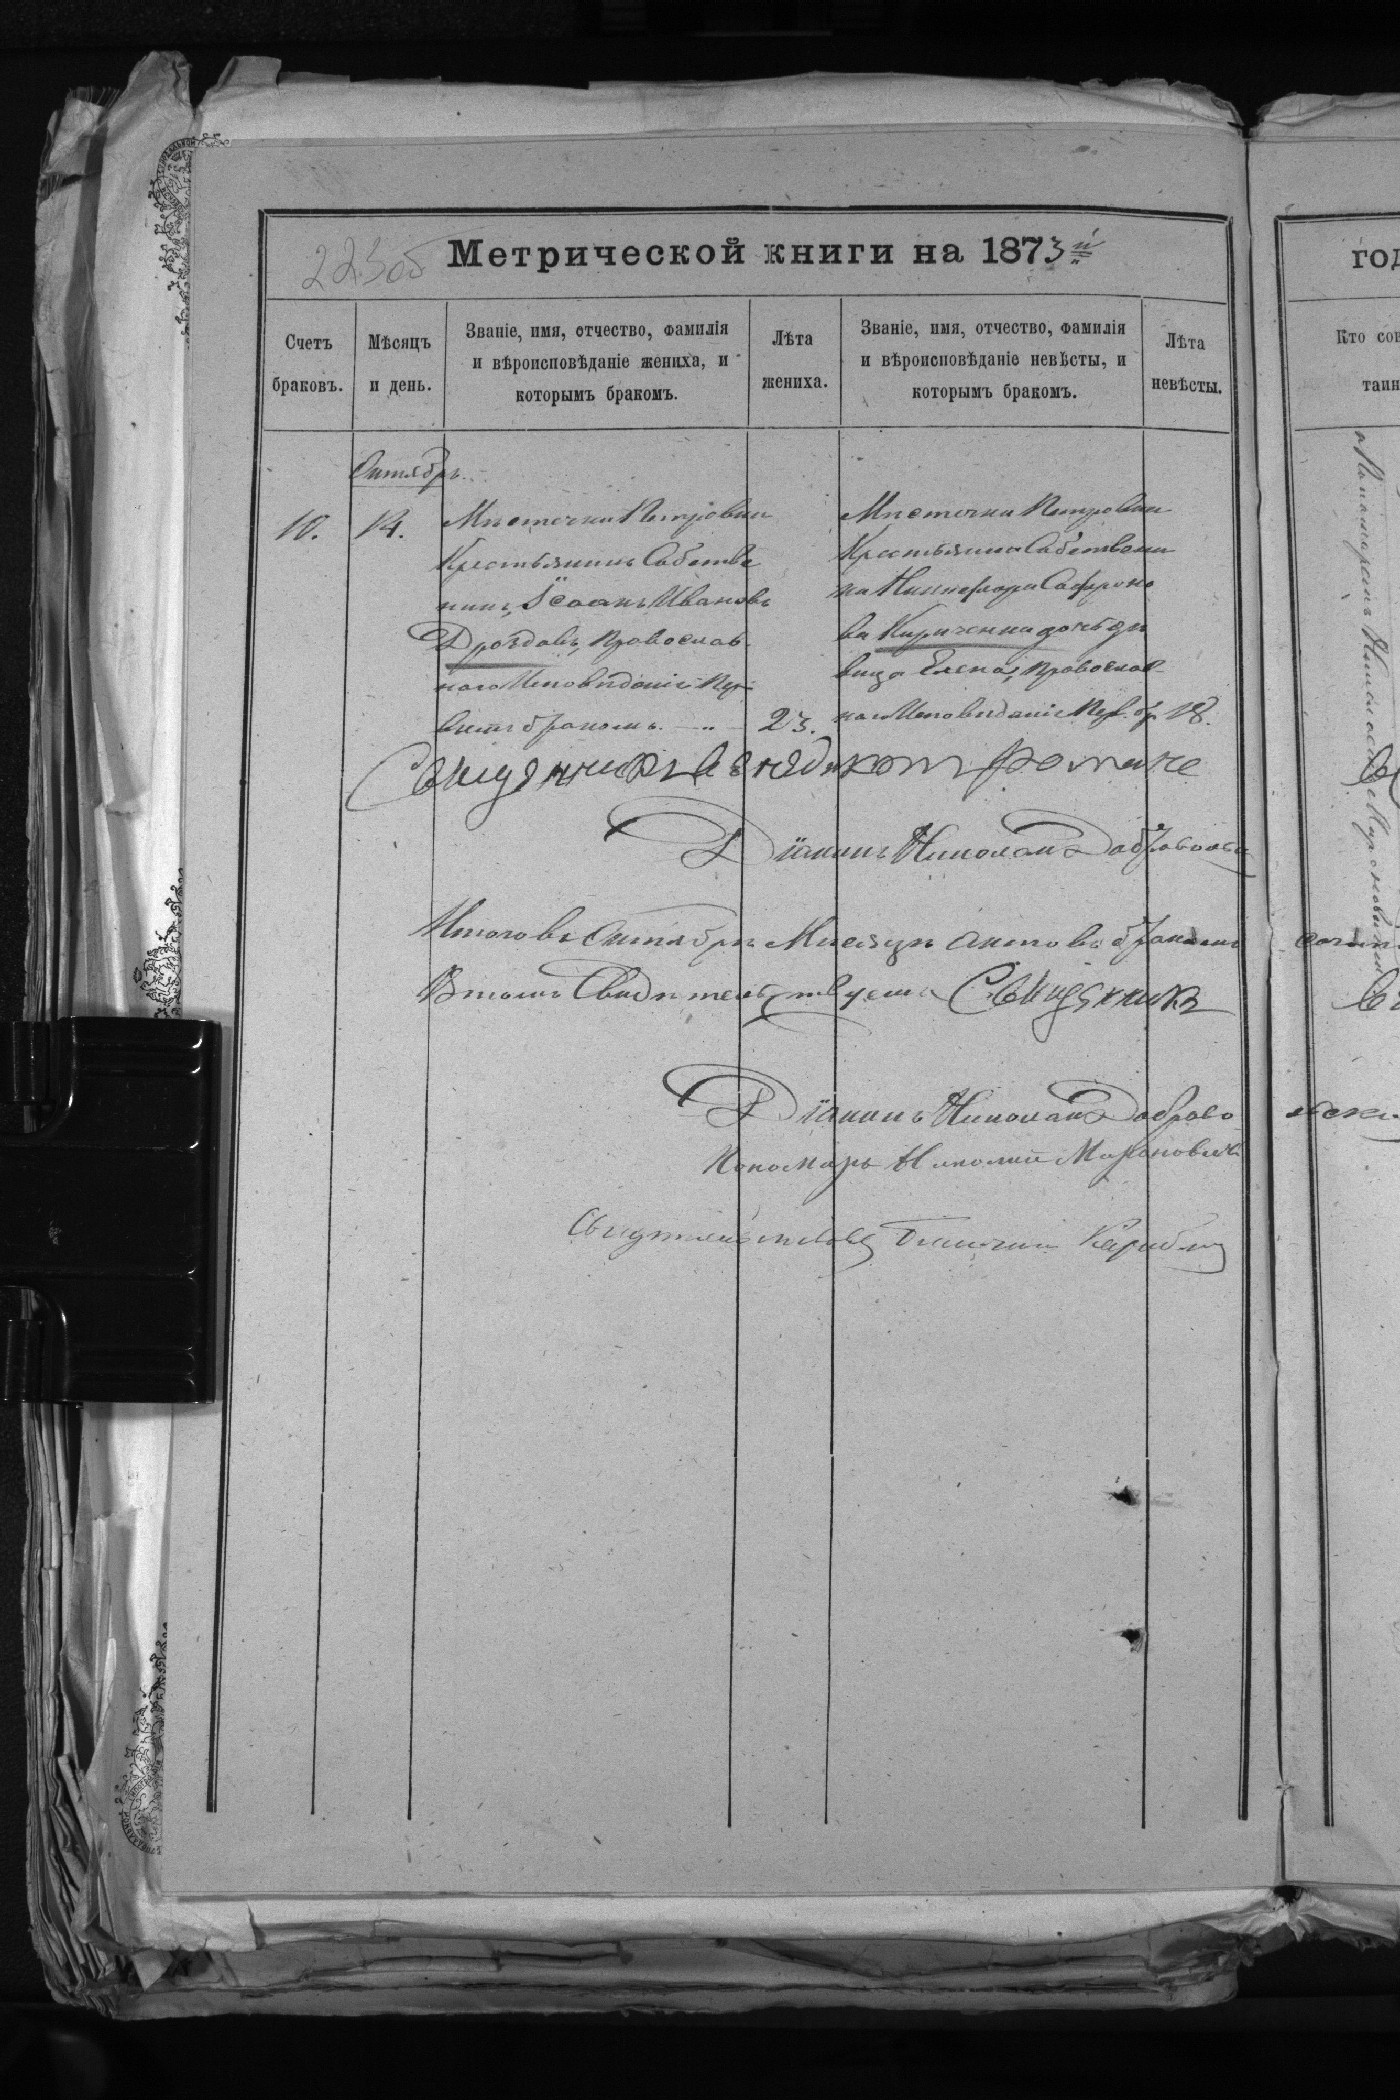 Метрической книги на 1873й
Счетъ браковъ.
Мѣсяцъ и день.
Званіе, имя, отчество, фамилія
и вѣроисповѣданіе жениха, и
которымъ бракомъ.
Лѣта жениха.
Званіе, имя, отчество, фамилія
и вѣроисповѣданіе невѣсты, и
которымъ бракомъ.
Лѣта невѣсты.
год
Октябрь.
10.
14.
Мѣстечки Петровки
Крестьянинъ Собстве
никъ, Іоанъ Ивановъ
Дроздовъ, Православ
наго Исповѣданія Пер
вимъ бракомъ.
23.
Мѣстечки Петровки
Крестьянина Собствени
ка Никифора Сафроно
ва Кириченка дочь дѣ
вица Елена, Православ
наго Исповѣданія Пер. бр.
18.
Священникъ
Діаконъ Николай Добровольс
Итого въ Октябрѣ Мѣсяцѣ актовъ о бракахъ
В томъ Свидѣтельствуемъ Священникъ
Діаконъ Николай Доброво
Пономарь Николай Мароновичъ